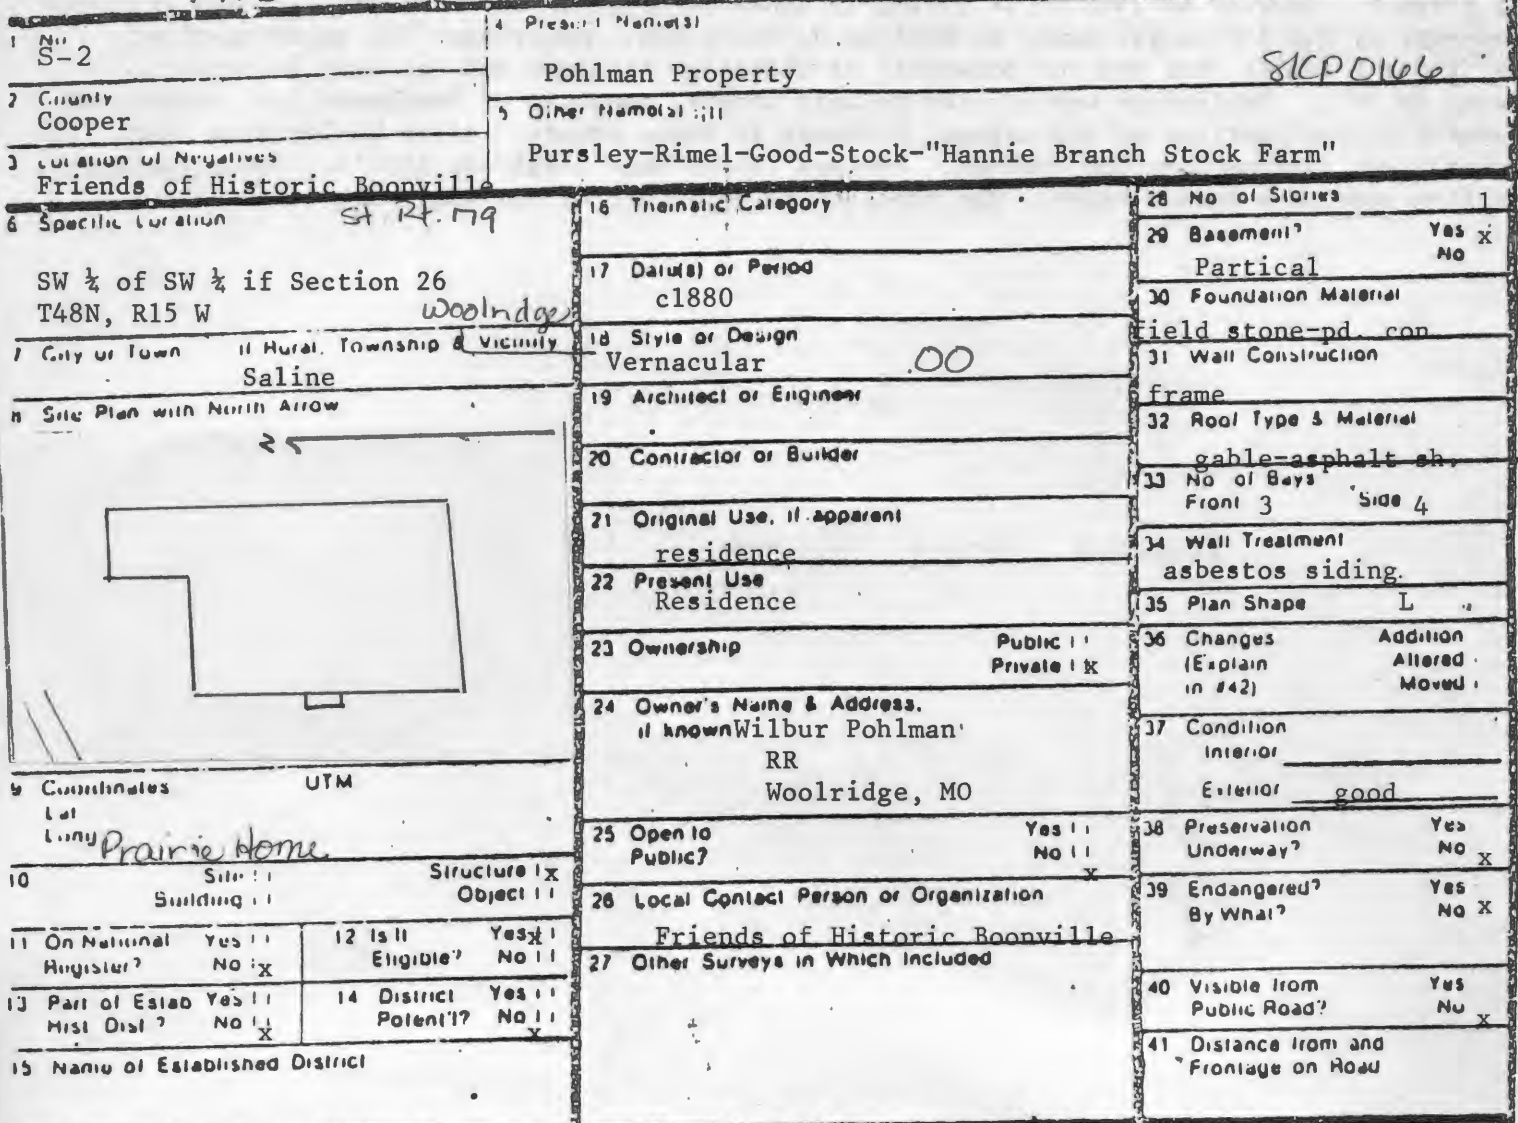 1 No.
S-2
4 Present Name(s)
Pohlman Property
SKCP0166
2 County
Cooper
5 Other Name(s)
Pursley-Rimel-Good-Stock-"Hannie Branch Stock Farm"
3 Location of Negatives
Friends of Historic Boonville
6 Specific Location
St Rt. 179
SW ¼ of SW ¼ if Section 26
T48N, R15 W
Woolridge
7 City or Town If Rural, Township & Vicinity
Saline
8 Site Plan with North Arrow
9 Coordinates UTM
Lat
Long
Prairie Home
10 Site
Structure x
Building
Object
11 On National Register? Yes
No x
12 Is It Eligible? Yes x
No
13 Part of Estab Hist Dist? Yes
No x
14 District Potent'l? Yes
No x
15 Name of Established District
16 Thematic Category
17 Date(s) or Period
c1880
18 Style or Design
Vernacular
.00
19 Architect or Engineer
20 Contractor or Builder
21 Original Use, if apparent
residence
22 Present Use
Residence
23 Ownership Public
Private x
24 Owner's Name & Address,
if known Wilbur Pohlman
RR
Woolridge, MO
25 Open to Yes
Public? No
x
26 Local Contact Person or Organization
Friends of Historic Boonville
27 Other Surveys in Which Included
28 No of Stories 1
29 Basement? Yes x
Partical No
30 Foundation Material
field stone-pd. con
31 Wall Construction
frame
32 Roof Type & Material
gable-asphalt sh.
33 No of Bays
Front 3 Side 4
34 Wall Treatment
asbestos siding.
35 Plan Shape L
36 Changes Addition
(Explain Altered
in #42) Moved
37 Condition
Interior
Exterior good
38 Preservation Yes
Underway? No x
39 Endangered? Yes
By What? No x
40 Visible from Yes
Public Road? No x
41 Distance from and
Frontage on Road